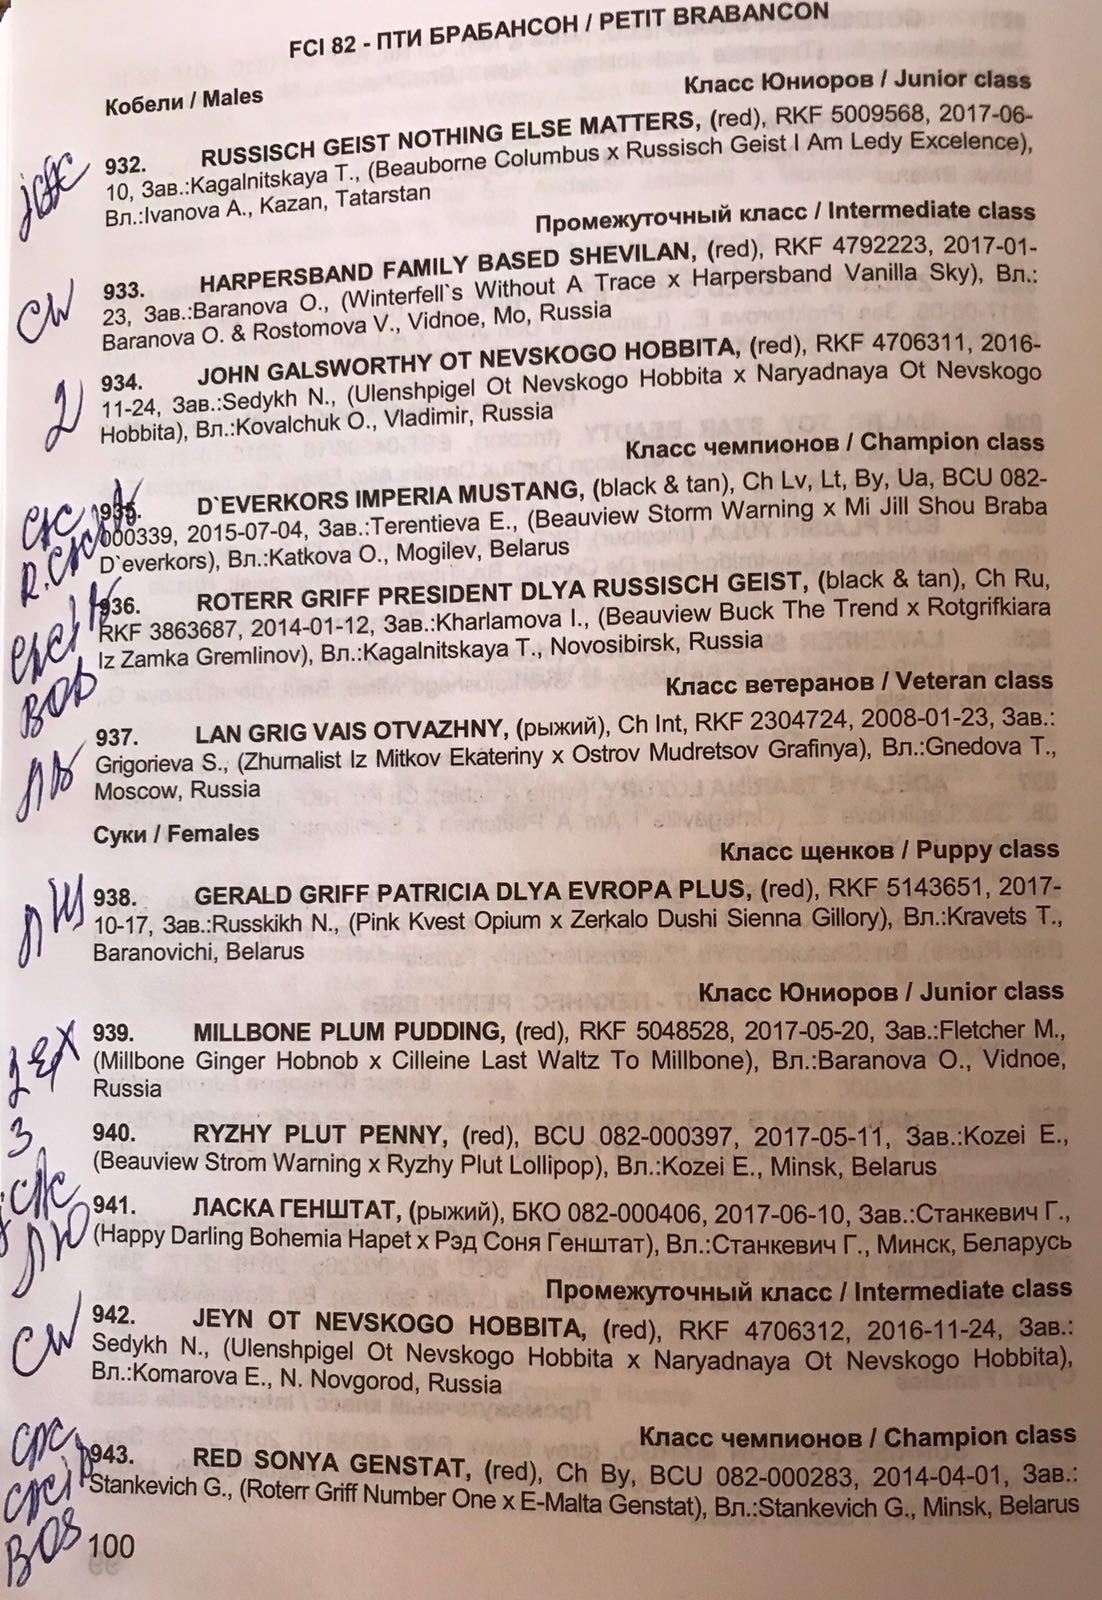 FCI 82 - ПТИ БРАБАНСОН / PETIT BRABANCON
Кобели / Males
Класс Юниоров / Junior class
jCAC
932. RUSSISCH GEIST NOTHING ELSE MATTERS, (red), RKF 5009568, 2017-06-
10, Зав.:Kagalnitskaya T., (Beauborne Columbus x Russisch Geist I Am Ledy Excelence),
Вл.:Ivanova A., Kazan, Tatarstan
Промежуточный класс / Intermediate class
CW
933. HARPERSBAND FAMILY BASED SHEVILAN, (red), RKF 4792223, 2017-01-
23, Зав.:Baranova O., (Winterfell`s Without A Trace x Harpersband Vanilla Sky), Вл.:
Baranova O. & Rostomova V., Vidnoe, Mo, Russia
2
934. JOHN GALSWORTHY OT NEVSKOGO HOBBITA, (red), RKF 4706311, 2016-
11-24, Зав.:Sedykh N., (Ulenshpigel Ot Nevskogo Hobbita x Naryadnaya Ot Nevskogo
Hobbita), Вл.:Kovalchuk O., Vladimir, Russia
Класс чемпионов / Champion class
CAC
R.CACIB
935. D`EVERKORS IMPERIA MUSTANG, (black & tan), Ch Lv, Lt, By, Ua, BCU 082-
000339, 2015-07-04, Зав.:Terentieva E., (Beauview Storm Warning x Mi Jill Shou Braba
D`everkors), Вл.:Katkova O., Mogilev, Belarus
CACIB
BOB
936. ROTERR GRIFF PRESIDENT DLYA RUSSISCH GEIST, (black & tan), Ch Ru,
RKF 3863687, 2014-01-12, Зав.:Kharlamova I., (Beauview Buck The Trend x Rotgrifkiara
Iz Zamka Gremlinov), Вл.:Kagalnitskaya T., Novosibirsk, Russia
Класс ветеранов / Veteran class
ЛВ
937. LAN GRIG VAIS OTVAZHNY, (рыжий), Ch Int, RKF 2304724, 2008-01-23, Зав.:
Grigorieva S., (Zhurnalist Iz Mitkov Ekateriny x Ostrov Mudretsov Grafinya), Вл.:Gnedova T.,
Moscow, Russia
Суки / Females
Класс щенков / Puppy class
ЛЩ
938. GERALD GRIFF PATRICIA DLYA EVROPA PLUS, (red), RKF 5143651, 2017-
10-17, Зав.:Russkikh N., (Pink Kvest Opium x Zerkalo Dushi Sienna Gillory), Вл.:Kravets T.,
Baranovichi, Belarus
Класс Юниоров / Junior class
939. MILLBONE PLUM PUDDING, (red), RKF 5048528, 2017-05-20, Зав.:Fletcher M.,
(Millbone Ginger Hobnob x Cilleine Last Waltz To Millbone), Вл.:Baranova O., Vidnoe,
Russia
3
940. RYZHY PLUT PENNY, (red), BCU 082-000397, 2017-05-11, Зав.:Kozei E.,
(Beauview Strom Warning x Ryzhy Plut Lollipop), Вл.:Kozei E., Minsk, Belarus
jCAC
ЛЮ
941. ЛАСКА ГЕНШТАТ, (рыжий), БКО 082-000406, 2017-06-10, Зав.:Станкевич Г.,
(Happy Darling Bohemia Hapet x Рэд Соня Генштат), Вл.:Станкевич Г., Минск, Беларусь
Промежуточный класс / Intermediate class
CW
942. JEYN OT NEVSKOGO HOBBITA, (red), RKF 4706312, 2016-11-24, Зав.:
Sedykh N., (Ulenshpigel Ot Nevskogo Hobbita x Naryadnaya Ot Nevskogo Hobbita),
Вл.:Komarova E., N. Novgorod, Russia
Класс чемпионов / Champion class
CAC
CACIB
BOS
943. RED SONYA GENSTAT, (red), Ch By, BCU 082-000283, 2014-04-01, Зав.:
Stankevich G., (Roterr Griff Number One x E-Malta Genstat), Вл.:Stankevich G., Minsk, Belarus
100